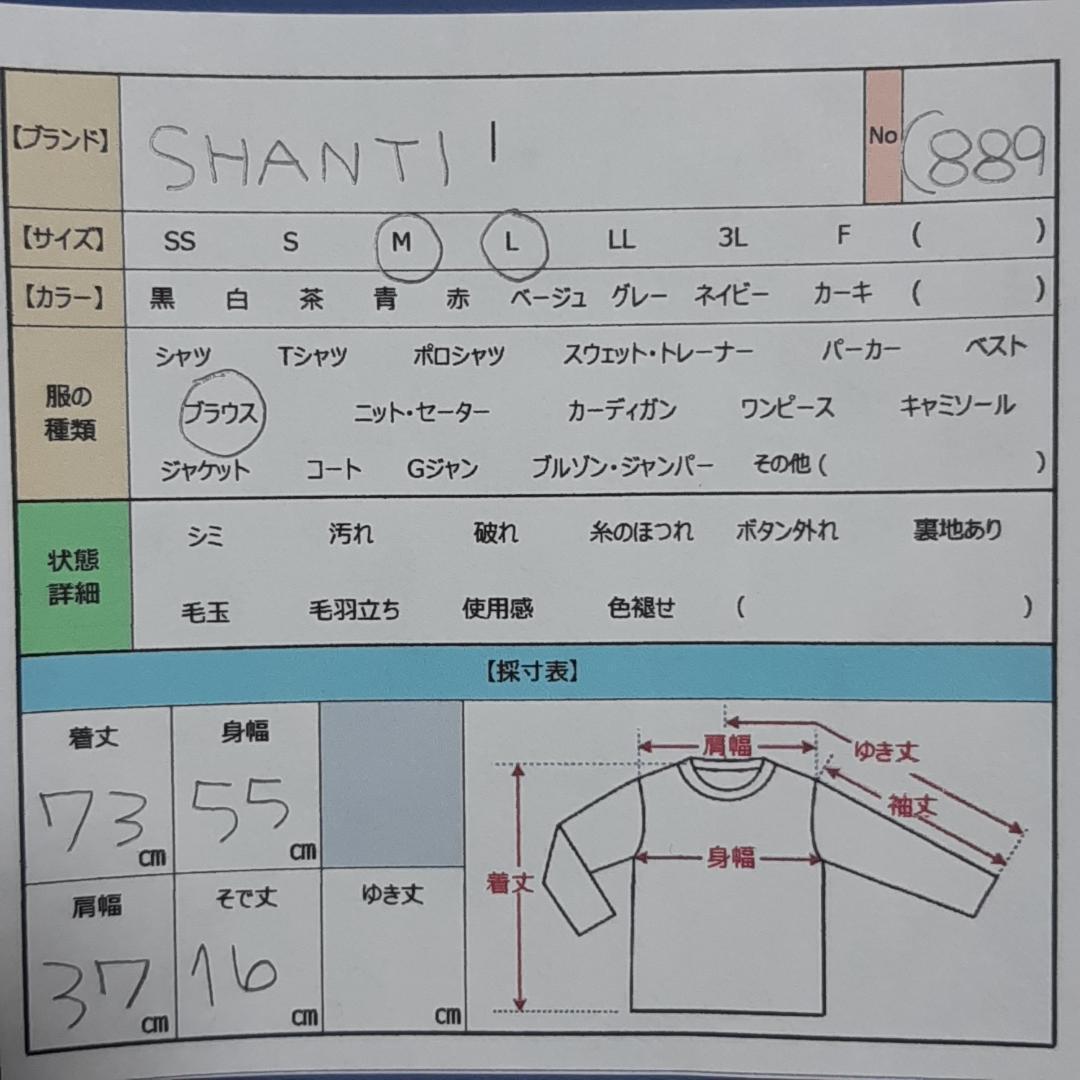 【ブランド】 SHANTI I No (889
【サイズ】 SS S M L LL 3L F ( )
【カラー】 黒 白 茶 青 赤 ベージュ グレー ネイビー カーキ ( )
服の
種類
シャツ Tシャツ ポロシャツ スウェット・トレーナー パーカー ベスト
ブラウス ニット・セーター カーディガン ワンピース キャミソール
ジャケット コート Gジャン ブルゾン・ジャンパー その他 ( )
状態
詳細
シミ 汚れ 破れ 糸のほつれ ボタン外れ 裏地あり
毛玉 毛羽立ち 使用感 色褪せ ( )
【採寸表】
着丈 身幅
73 cm 55 cm
肩幅 そで丈 ゆき丈
37 cm 16 cm cm
肩幅 ゆき丈
袖丈
身幅
着丈